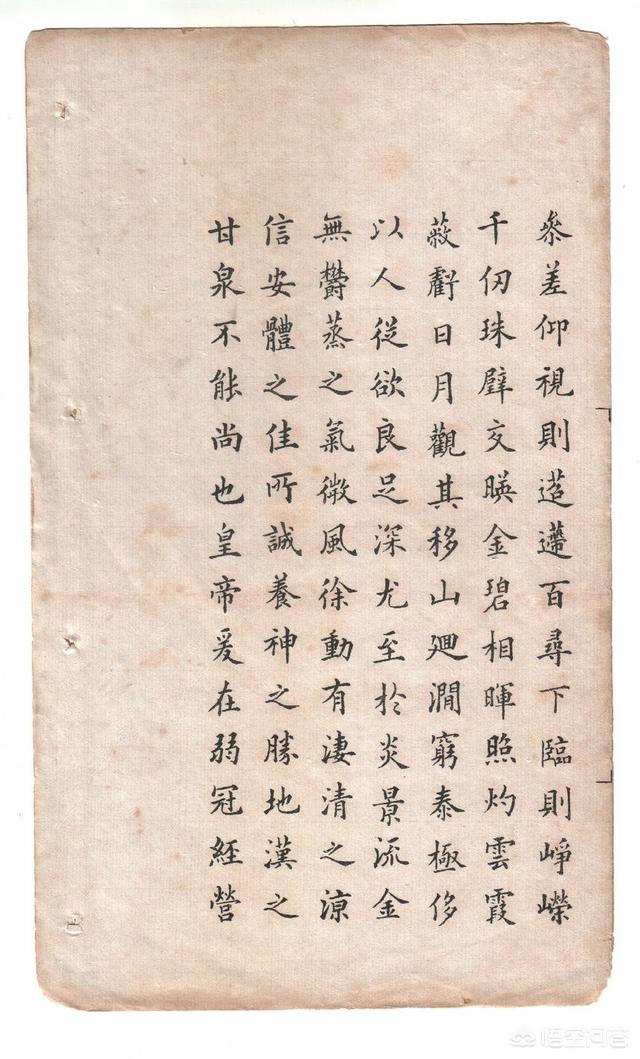 叅差仰視則迢遰百尋下臨則崢嶸
千仞珠璧交暎金碧相暉照灼雲霞
蔽虧日月觀其移山廻澗窮泰極侈
以人從欲良足深尤至於炎景流金
無欝蒸之氣微風徐動有淒清之涼
信安體之佳所誠養神之勝地漢之
甘泉不能尚也皇帝爰在弱冠經營
悟空问答